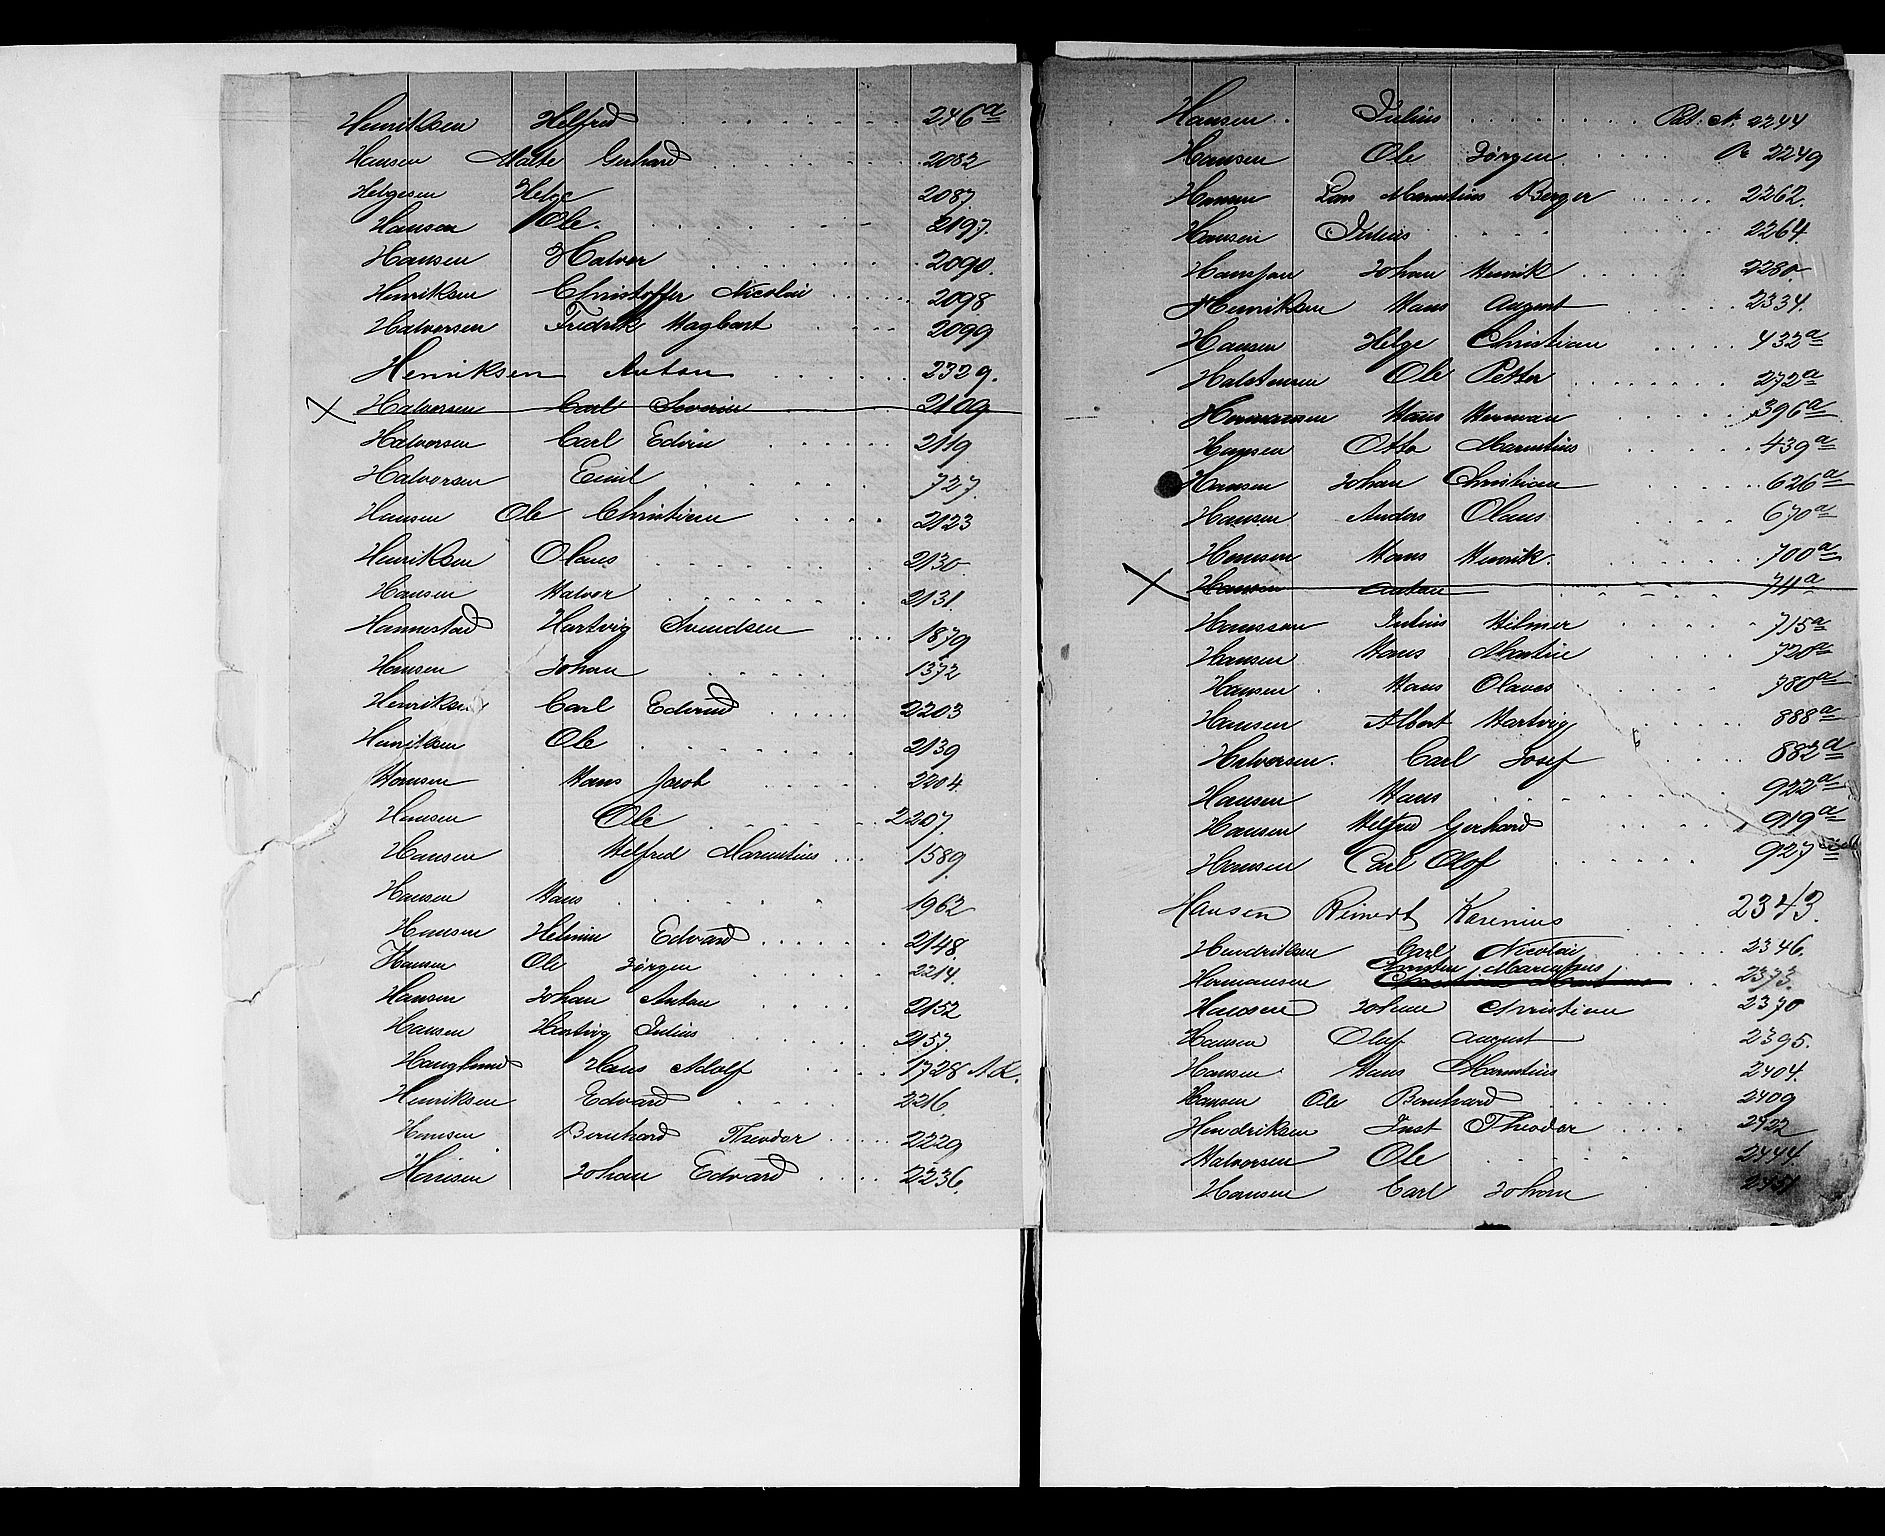 Henriksen Helfred 246a
Hansen Malte Gerhard 2082
Helgesen Helge 2087
Hansen Ole. 2197.
Hansen Halvor 2090.
Henriksen Christoffer Nicolai 2098
Halvorsen Fredrik Hagbart 2099
Henriksen Anton 2329.
Halvorsen Carl Severin 2109
Halvorsen Carl Edvin 2119
Halvorsen Emil 727.
Hansen Ole Christian 2123
Henriksen Olaus 2130.
Hansen Halvor 2131.
Hannestad Hartvig Svendsen 1879
Hansen Johan 1372
Henriksen Carl Edvard 2203
Henriksen Ole 2139
Hansen Hans Jacob 2204.
Hansen Ole 2207.
Hansen Helfred Marentius 1589
Hansen Hans 1962
Hansen Helmin Edvard 2148.
Hansen Ole Jörgen 2214.
Hansen Johan Anton 2152
Hansen Hartvig Julius 2157.
Hauglund Hans Adolf 1728 A.R.
Henriksen Edvard 2216.
Hansen Bernhard Theodor 2229
Hansen Johan Edvard 2236.
Hansen. Julius Pat. N. 2244
Hansen Ole Jörgen 2249
Hansen Lars Marentius Berger 2262.
Hansen Julius 2264.
Hanssen Johan Henrik 2280.
Henriksen Hans August 2334.
Hansen Helge Christian 432a
Halstensen Ole Petter 272a
Hermansen Hans Herman 396a
Hansen Otto Marentius 439a
Hansen Johan Christian 626a
Hansen Anders Olaus 670a
Hansen Hans Henrik. 700a
Hansen Anton 711a
Hanssen Julius Hilmer 715a
Hansen Hans Martin 720a
Hansen. Hans Olaves 780a
Hansen Albert Hartvig 888a
Halvorsen. Carl Josef 882a
Hansen Hans 922a
Hansen Helfred Gerhard 919a
Hansen Carl Olof 927a
Hansen Reinert Karenius 2343.
Hendriksen Carl Nicolai 2346.
Marentius
Hermansen 2373.
Hansen Johan Christian 2370
Hansen Olaf August 2395.
Hansen Hans Marentius 2404.
Hansen Ole Bernhard 2409
Hendriksen Just Theodor 2422
Halvorsen Ole 2444.
Hansen Carl Johan 2451